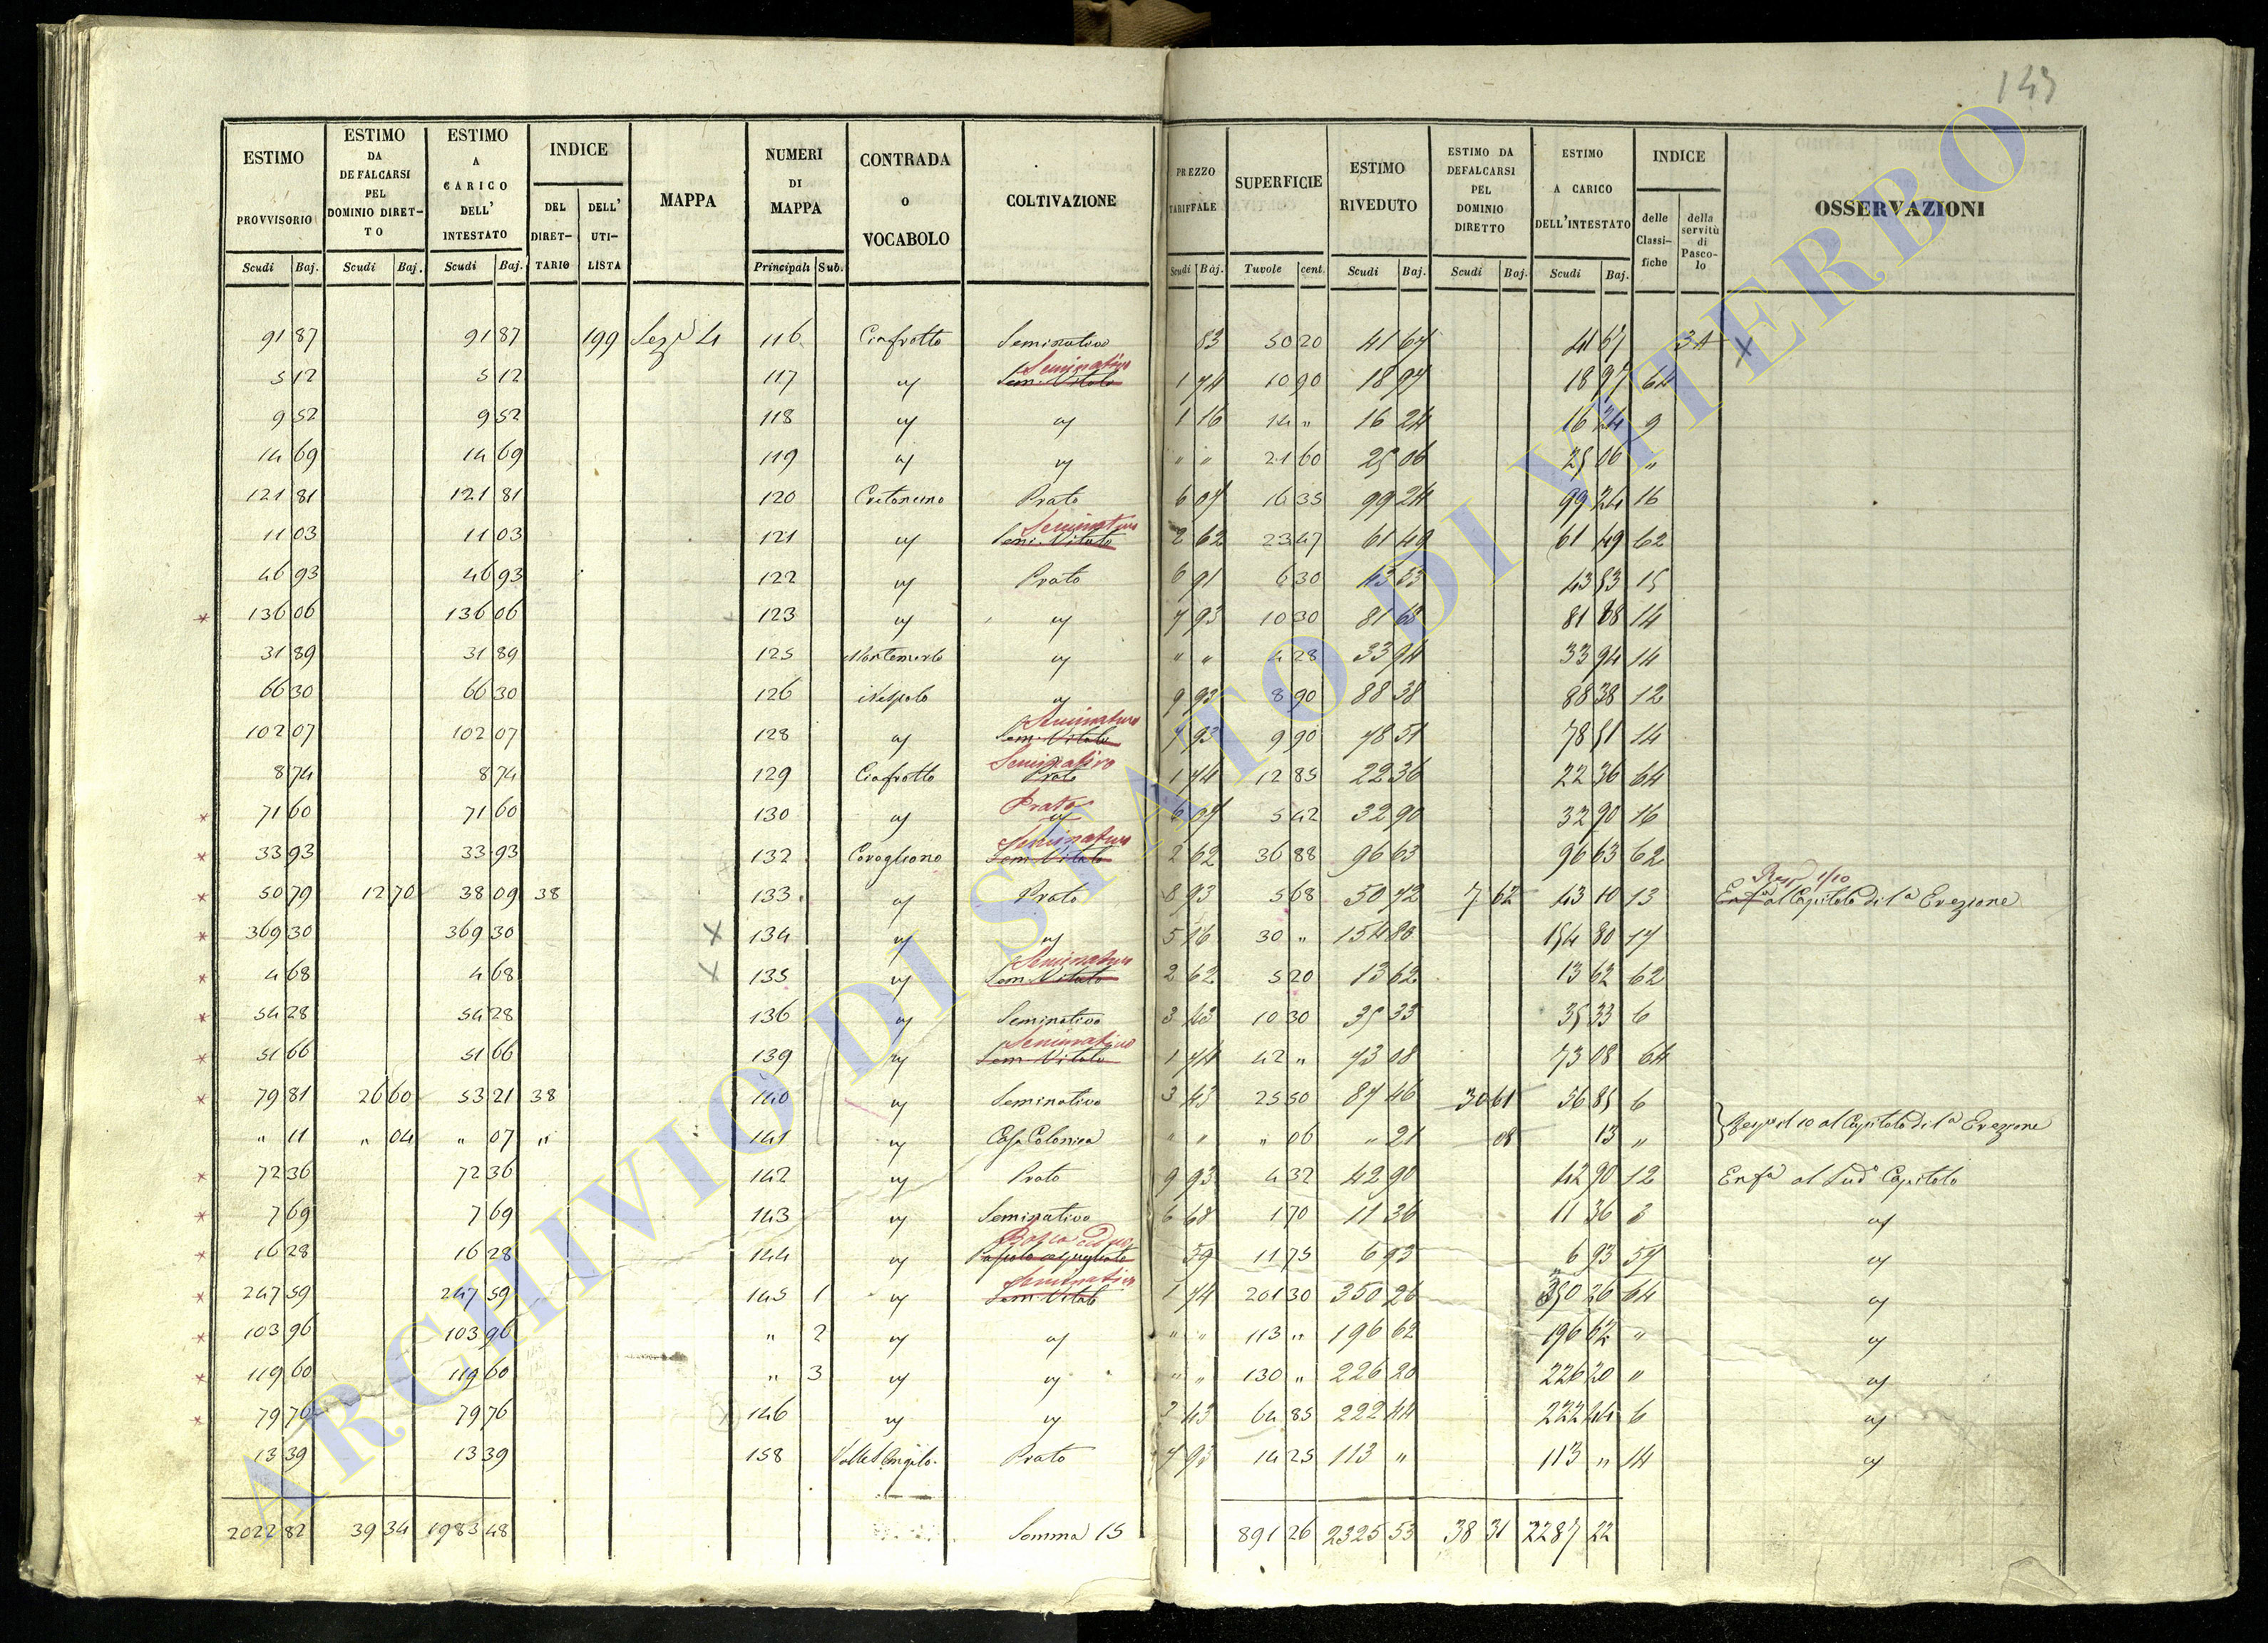 143
ESTIMO PROVVISORIO | ESTIMO DA DEFALCARSI PEL DOMINIO DIRET-TO | ESTIMO A CARICO DELL' INTESTATO | INDICE DEL DIRET-TARIO | DELL' UTI-LISTA | MAPPA | NUMERI DI MAPPA | CONTRADA O VOCABOLO | COLTIVAZIONE | PREZZO TARIFFALE | SUPERFICIE | ESTIMO RIVEDUTO | ESTIMO DA DEFALCARSI PEL DOMINIO DIRETTO | ESTIMO A CARICO DELL'INTESTATO | INDICE delle Classi-fiche | della servitù di Pasco-lo | OSSERVAZIONI
Scudi | Baj. | Scudi | Baj. | Scudi | Baj. | Principali | Sub. | Scudi | Baj. | Tavole | cent. | Scudi | Baj. | Scudi | Baj. | Scudi | Baj.
91 87 | 91 87 | 199 | Sezº 4 | 116 | Ciafrotto | Seminativo | 83 | 50 20 | 41 67 | 41 67 | 34 | x
Seminativo
5 12 | 5 12 | 117 | " | Sem. Vitato | 1 74 | 10 90 | 18 97 | 18 97 | 64
9 52 | 9 52 | 118 | " | " | 1 16 | 14 " | 16 24 | 16 24 | 9
14 69 | 14 69 | 119 | " | " | " " | 21 60 | 25 06 | 25 06 | "
121 81 | 121 81 | 120 | Cretoncino | Prato | 6 07 | 16 35 | 99 24 | 99 24 | 16
Seminativo
11 03 | 11 03 | 121 | " | Sem. Vitato | 2 62 | 23 47 | 61 49 | 61 49 | 62
46 93 | 46 93 | 122 | " | Prato | 6 91 | 6 30 | 43 53 | 43 53 | 15
136 06 | 136 06 | 123 | " | " | 7 93 | 10 30 | 81 68 | 81 68 | 14
31 89 | 31 89 | 125 | " | " " | 4 28 | 33 94 | 33 94 | 14
66 30 | 66 30 | 126 | Nespolo | " | 9 93 | 8 90 | 88 38 | 88 38 | 12
Seminativo
102 07 | 102 07 | 128 | " | Sem. Vitato | 7 93 | 9 90 | 78 51 | 78 51 | 14
Seminativo
8 74 | 8 74 | 129 | Ciafrotto | Prato | 1 74 | 12 85 | 22 36 | 22 36 | 64
Prato
71 60 | 71 60 | 130 | " | " | 6 07 | 5 42 | 32 90 | 32 90 | 16
Seminativo
33 93 | 33 93 | 132 | Covogliano | Sem. Vitato | 2 62 | 36 88 | 96 63 | 96 63 | 62
Resp. 1/10
50 79 | 12 70 | 38 09 | 38 | 133 | " | Prato | 8 93 | 5 68 | 50 72 | 7 62 | 43 10 | 13 | Enfª al Capitolo di 1ª Erezione
369 30 | 369 30 | x | 134 | " | " | 5 16 | 30 " | 154 80 | 154 80 | 17
Seminativo
4 68 | 4 68 | x | 135 | " | Sem. Vitato | 2 62 | 5 20 | 13 62 | 13 62 | 62
54 28 | 54 28 | 136 | " | Seminativo | 3 43 | 10 30 | 35 33 | 35 33 | 6
Seminativo
51 66 | 51 66 | 139 | " | Sem. Vitato | 1 74 | 42 " | 73 08 | 73 08 | 64
79 81 | 26 60 | 53 21 | 38 | 140 | " | Seminativo | 3 43 | 25 50 | 87 46 | 30 61 | 56 85 | 6
" 11 | " 04 | " 07 | " | 141 | " | Casa Colonica | " " | " 06 | " 21 | 08 | 13 | " | al Capitolo di 1ª Erezione
72 36 | 72 36 | 142 | " | Prato | 9 93 | 4 32 | 42 90 | 42 90 | 12 | Enfª al Sudº Capitolo
7 69 | 7 69 | 143 | " | Seminativo | 6 68 | 1 70 | 11 36 | 11 36 | 3 | "
16 28 | 16 28 | 144 | " | Pascolo cespugliato | 59 | 11 75 | 6 93 | 6 93 | 59 | "
Seminativo
247 59 | 247 59 | 145 | 1 | " | Sem. Vitato | 1 74 | 201 30 | 350 26 | 350 26 | 64 | "
103 96 | 103 96 | " | 2 | " | " | " " | 113 " | 196 62 | 196 62 | " | "
119 60 | 119 60 | " | 3 | " | " | " " | 130 " | 226 20 | 226 20 | " | "
79 76 | 79 76 | 146 | " | " | 3 43 | 64 85 | 222 44 | 222 44 | 6 | "
13 39 | 13 39 | 158 | Valle S. Angelo | Prato | 7 93 | 14 25 | 113 " | 113 " | 14 | "
2022 82 | 39 34 | 1983 48 | Somma 15 | 891 26 | 2325 53 | 38 31 | 2287 22
ARCHIVIO DI STATO DI VITERBO